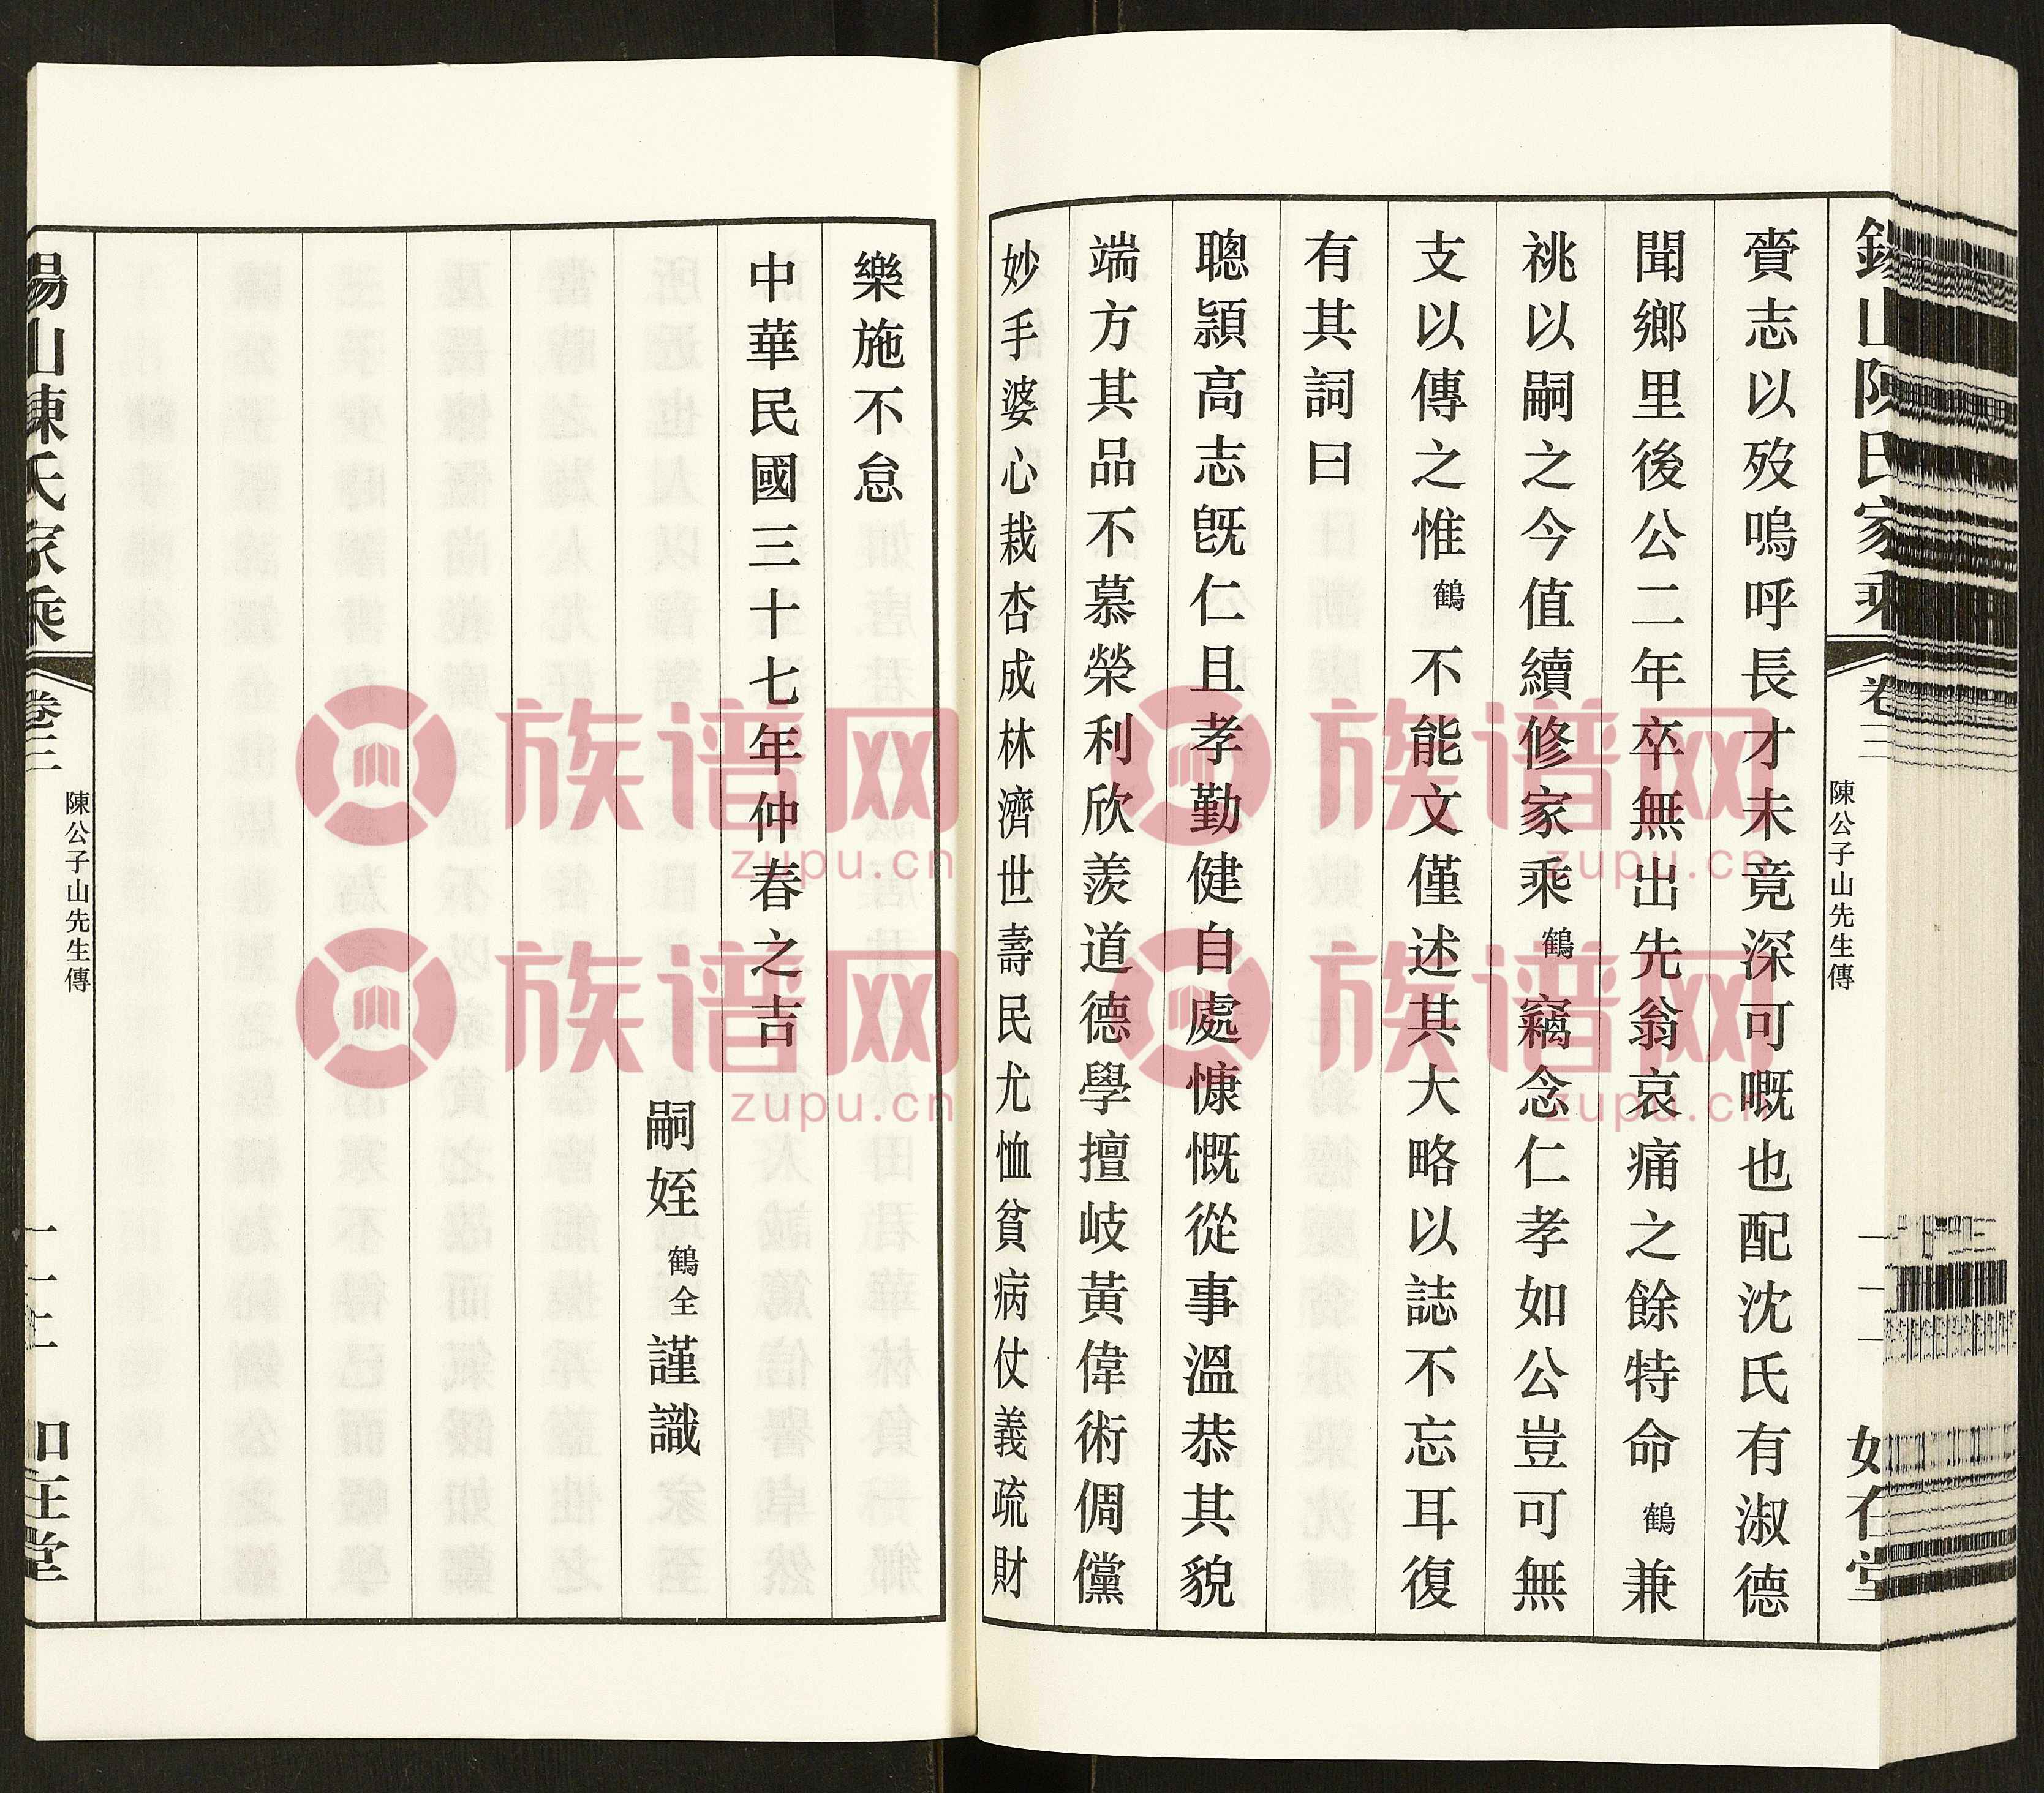 錫山陳氏家乘 卷三 陳公子山先生傳 如在堂
賫志以歿嗚呼長才未竟深可嘅也配沈氏有淑德
聞鄉里後公二年卒無出先翁哀痛之餘特命鶴兼
祧以嗣之今值續修家乘鶴竊念仁孝如公豈可無
支以傳之惟鶴不能文僅述其大略以誌不忘耳復
有其詞曰
聰穎高志旣仁且孝勤健自處慷慨從事溫恭其貌
端方其品不慕榮利欣羨道德學擅岐黃偉術倜儻
妙手婆心栽杏成林濟世壽民尤恤貧病仗義疏財
樂施不怠
中華民國三十七年仲春之吉
嗣姪鶴全謹識
錫山陳氏家乘 卷三 陳公子山先生傳 如在堂
族谱网
zupu.cn
族谱网
zupu.cn
族谱网
zupu.cn
族谱网
zupu.cn